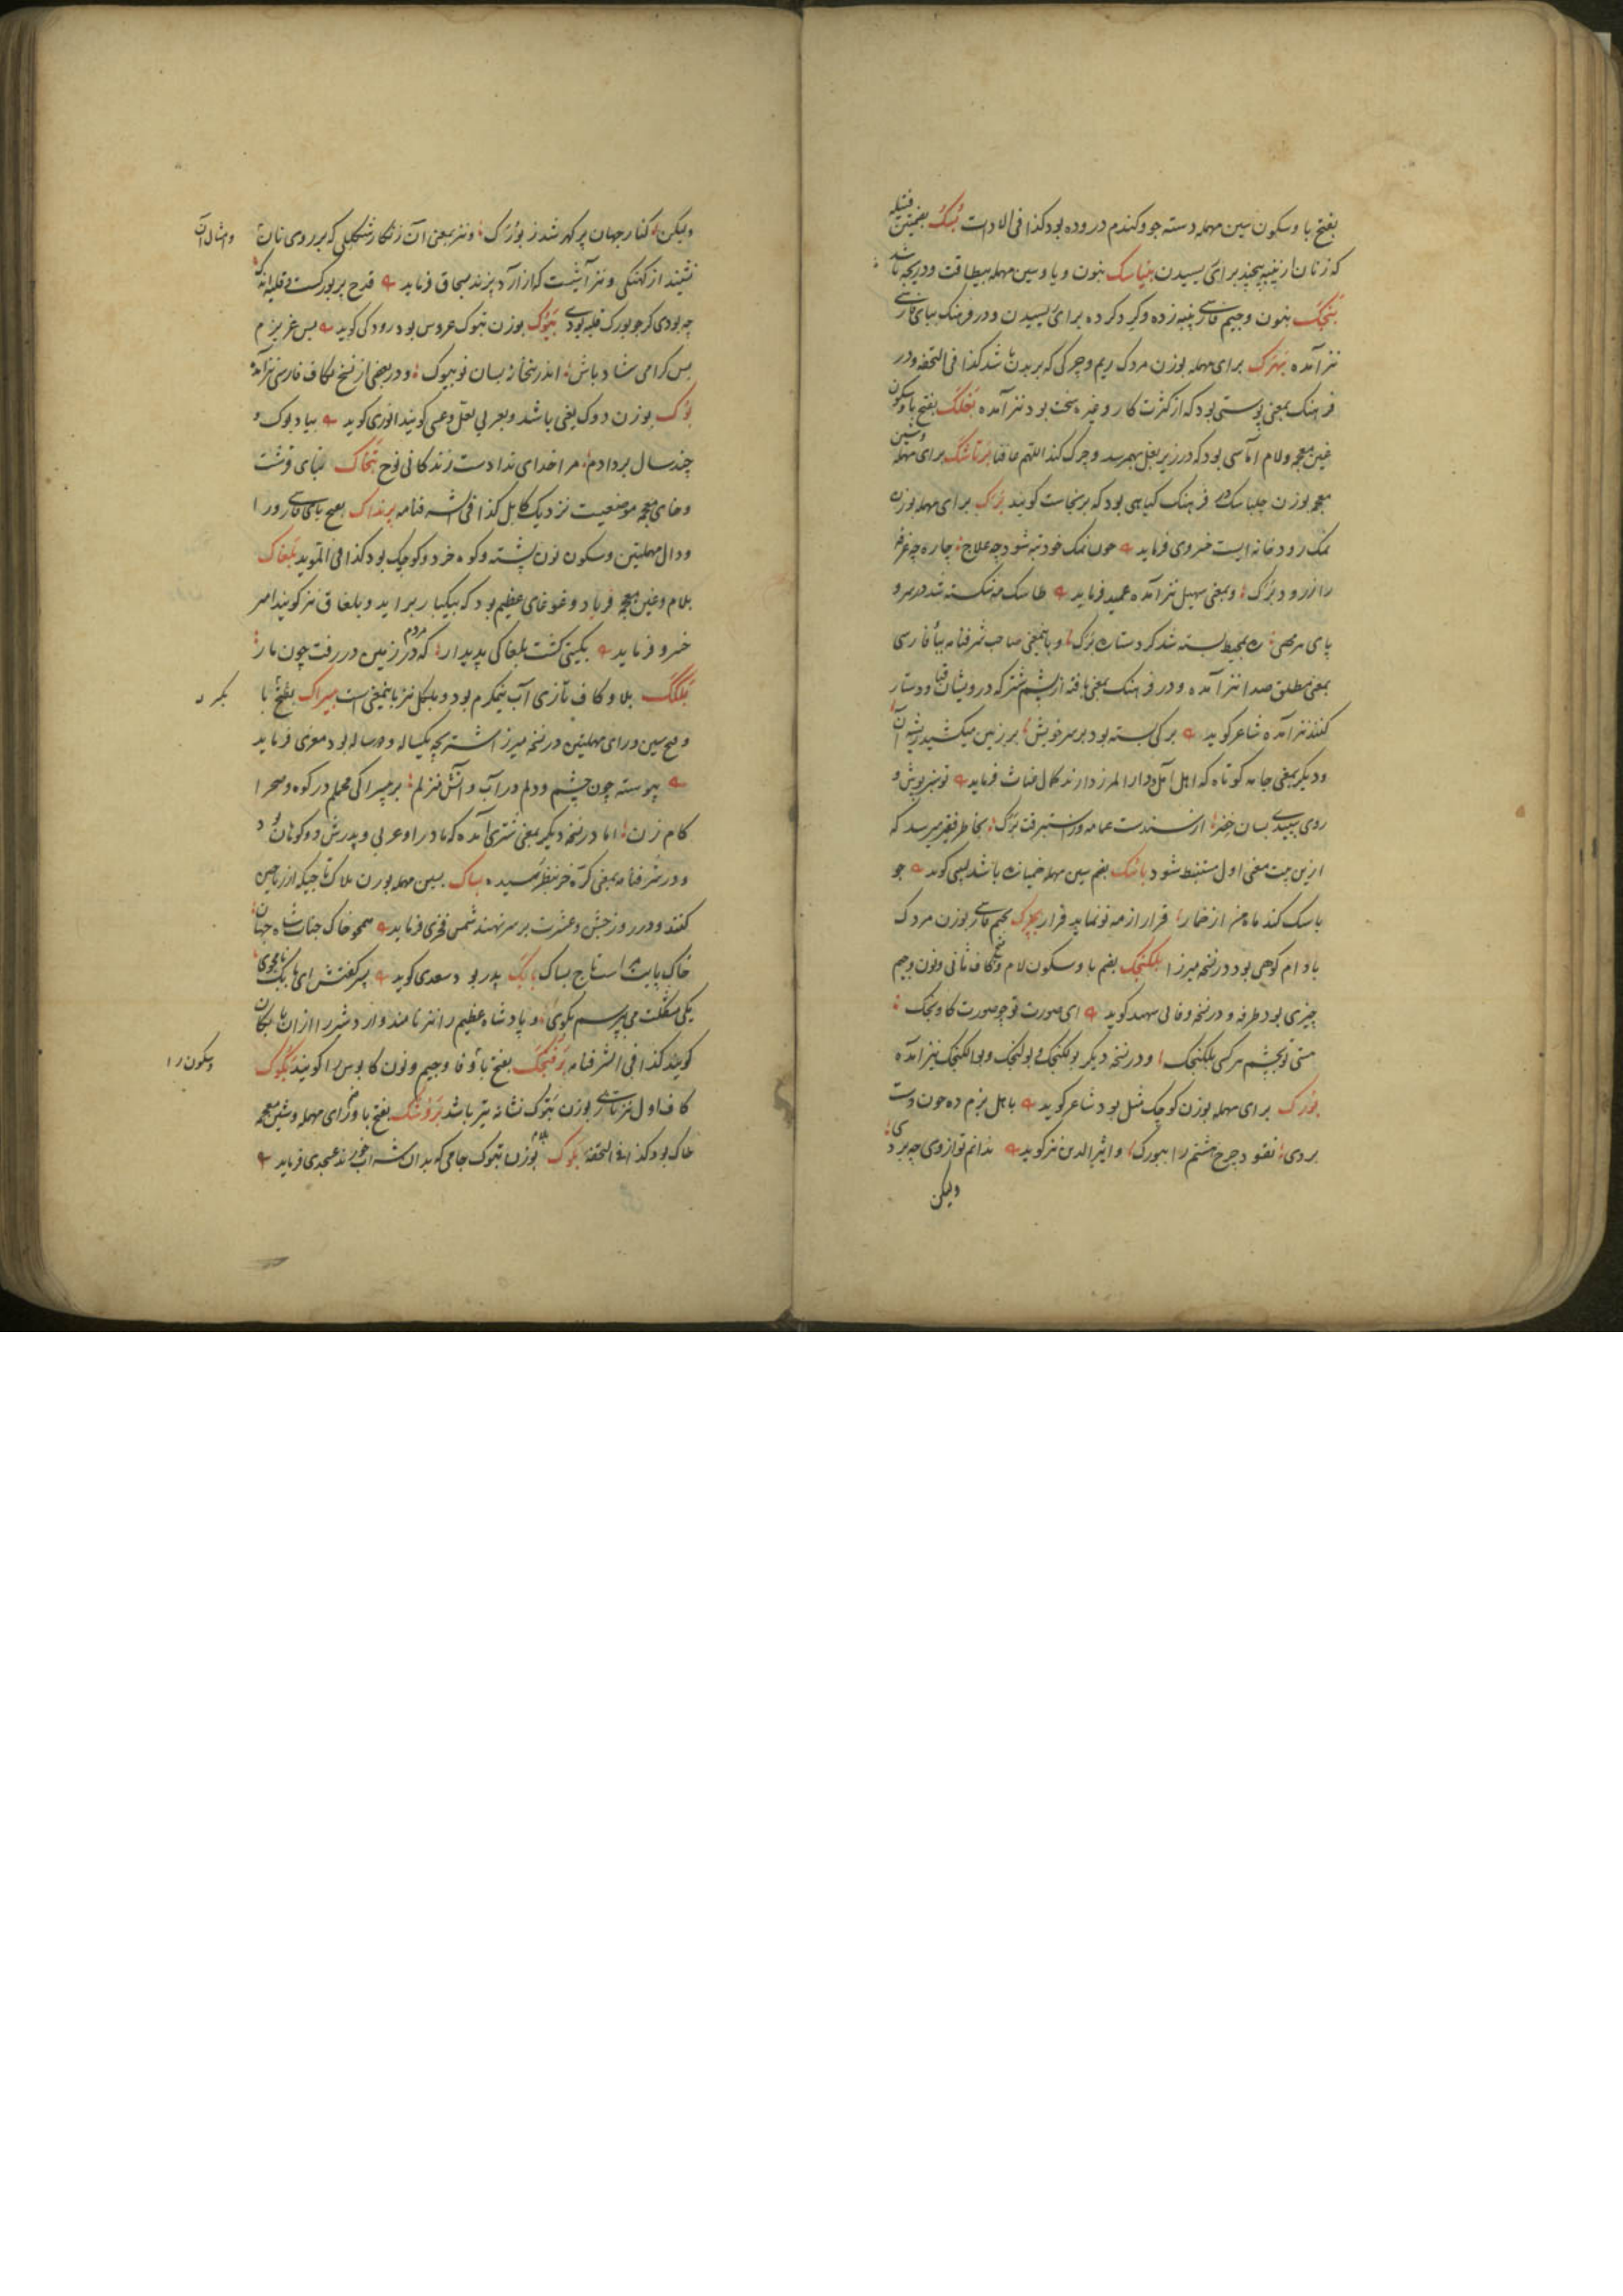 بفتح با و سکون سین مهمله دسته جو و کندم دروده بود کذا فی الادات بسک بضمتین فتیله
که زنان از پنبه پیچند برای ریسیدن بنیاسک بنون و یا و سین مهمله بیطاقت و دریچه باشد
بنجک بنون و جیم فارسی پنبه زده و کرد کرده برای ریسیدن و در فرهنک ببای فارسی
نیز آمده بهرک برای مهمله بوزن مردک ریم و چرکی که بر بدن باشد کذا فی التحفه و در
فرهنک بمعنی پوستی بود که از کثرت کار و غیره سخت بود نیز آمده بغلک بفتح با و سکون
غین معجمه و لام آماسی بود که در زیر بغل بهم رسد و چرک کند اللهم عافنا برتاشک برای مهمله و شین
معجمه بوزن چلپاسک در فرهنک کیاهی بود که برنجاست کویند برک برای مهمله بوزن
نمک رودخانه ایست خسروی فرماید چون نمک خود تبه شود چه علاج چاره چه غرقه
را از رود برک و بمعنی سهیل نیز آمده عمید فرماید طاسک مه شکسته شد در سر و
پای هر صی بمحیط بسته شد کرد ستاره برک و باینمعنی صاحب شرفنامه ببا فارسی
بمعنی مطلق صدا نیز آمده و در فرهنک بمعنی بافته از پشم شتر که درویشان قبا و دستار
کنند نیز آمده شاعر کوید برکی بسته بود بر سر خویش بر زمین میکشید ریشه آن
و دیکر بمعنی جامه کوتاه که اهل آمل و دار المرز دارند کمال غیاث فرماید تو سبز پوش و
روی سپیدی بسان خضر از سندست عمامه و استبرقت برک بخاطر فقیر میرسد که
ازین بیت معنی اول مستنبط شود باسک بضم سین مهمله خمیازه باشد لبیبی کوید چو
باسک کند ماه من از خمار قرار از مه نو نماید فرار بجرک بجیم فارسی بوزن مردک
بادام کوهی بود در نسخه میرزا بلکنجک بضم با و سکون لام و فتح کاف ثانی و نون و جیم
چیزی بود طرفه و در نسخه وفائی شهید کوید ای صورت تو چو صورت کاونجک
هستی تو بچشم هر کسی بلکنجک و در نسخه دیکر بولکنجک و بولنجک و بوالکنجک نیز آمده
بورک برای مهمله بوزن کوچک مثل بود شاعر کوید با اهل بزم ده چون دست
بردی نقود چرخ هشتم را ببورک و اثیر الدین نیز کوید ندانم تو از وی چه بردی
ولیکن
ولیکن کنار جهان پر کهر شد ز بورک و نیز بمعنی آن زنکار شکلی که بر روی نان و امثال آن
نشیند از کهنکی و نیز آشیست که از آرد پزند بسحاق فرماید قدح پر بورکست و قلیه انه
چه بودی کر چو بورک قلیه بودی بیوک بوزن تبوک عروس بود رودکی کوید بس عزیزم
بس کرامی شاد باش اندر ینخانه بسان نو بیوک و در بعضی از نسخ بکاف فارسی نیز آمده
بوک بوزن دوک یعنی باشد و بعربی لعل و عسی کویند انوری کوید بیاد بوک و
چند سال بردادم مرا خدای ندادست زندکانی نوح بنخاک ببای قرشت
و خای معجمه موضعیست نزدیک کابل کذا فی الشرفنامه برنداک بفتح بای فارسی و را
و دال مهملتین و سکون نون پشته و کوه خرد و کوچک بود کذا فی المؤید بلغاک
بلام و غین معجمه فریاد و غوغای عظیم بود که بیکبار براید و بلغاق نیز کویند امیر
خسرو فرماید بکیتی کشت بلغاکی پدیدار که مردم در زمین در رفت چون مار
بلکک بلام و کاف تازی آب نیمکرم بود و بلبکل نیز باینمعنی است بیسراک بفتح با بکسر
و فتح سین و رای مهملتین در نسخه میرزا اشتر بچه یکساله و دو ساله بود معزی فرماید
پیوسته چون چشم و دلم در آب و آتش منزلم بر بیسراکی محملم در کوه و صحرا
کام زن اما در نسخه دیکر بمعنی شتری آمده که مادر او عربی و پدرش دو کوهان بود
و در شرفنامه بمعنی کره خر بنظر رسیده بساک بسین مهمله بوزن هلاک تاجیکه از ریاحین
کنند و در روز جشن و عشرت بر سر نهند شمس فخری فرماید همچو خاک جناب شاه جهان
خاک پایت است تاج بساک بک پدر بود سعدی کوید پسر کفتش ای بابک نامجوی
یکی مشکلت می بپرسم بکوی و پادشاه عظیم را نیز نامند و اردشیر را ازان بابکان
کویند کذا فی الشرفنامه برفنجک بفتح با و فا و جیم و نون کابوس را کویند بکوک و سکون را
کاف اول نیز تازی بوزن بتوک نشانه تیر باشد بروشک بفتح با و را رای مهمله و شین معجمه
خاک بود کذا فی التحفه بلوک بوزن تبوک جامی که بدان شراب خورند عسجدی فرماید